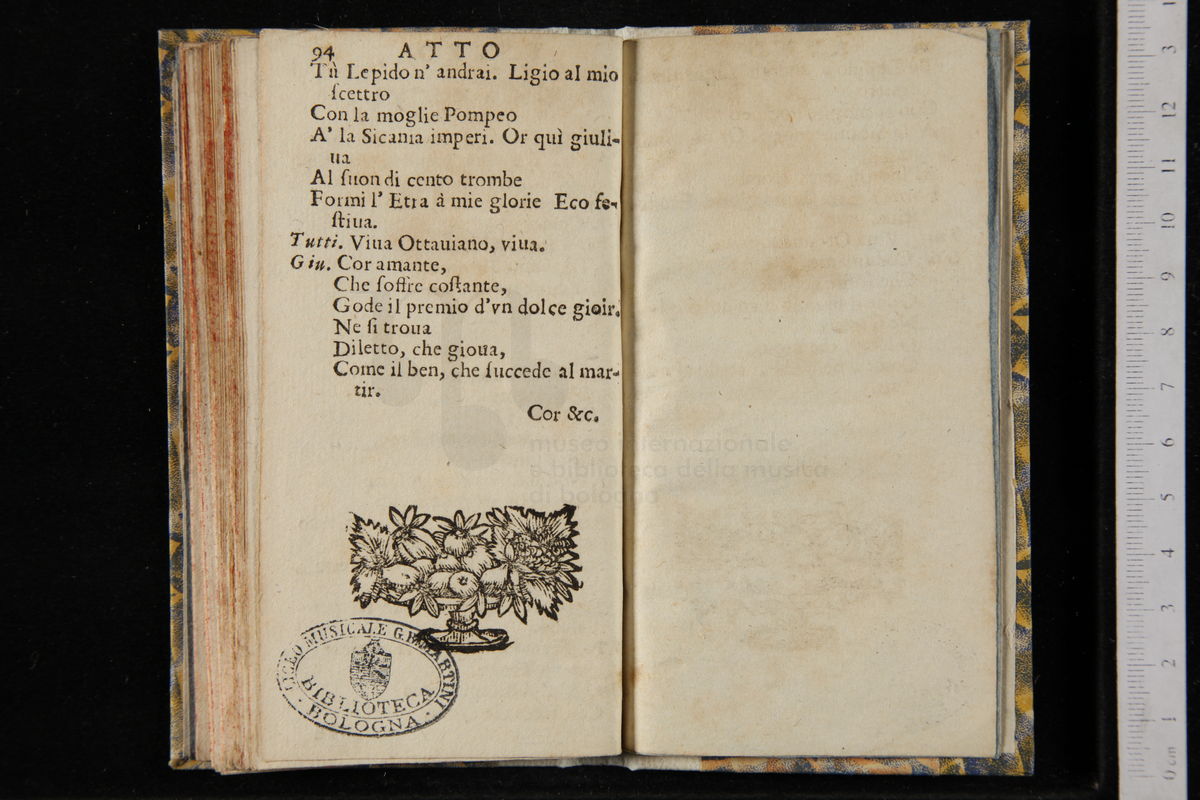 94 ATTO
Tù Lepido n' andrai. Ligio al mio
ſcettro
Con la moglie Pompeo
A' la Sicania imperi. Or quì giuli-
ua
Al ſuon di cento trombe
Formi l' Etra à mie glorie Eco fe-
ſtiua.
Tutti. Viua Ottauiano, viua.
Giu. Cor amante,
Che ſoffre coſtante,
Gode il premio d'vn dolce gioir.
Ne ſi troua
Diletto, che gioua,
Come il ben, che ſuccede al mar-
tir.
Cor &c.
museo internazionale
e biblioteca della musica
di bologna
LICEO MUSICALE G.B. MARTINI
BIBLIOTECA
· BOLOGNA ·
0 cm 1 2 3 4 5 6 7 8 9 10 11 12 13